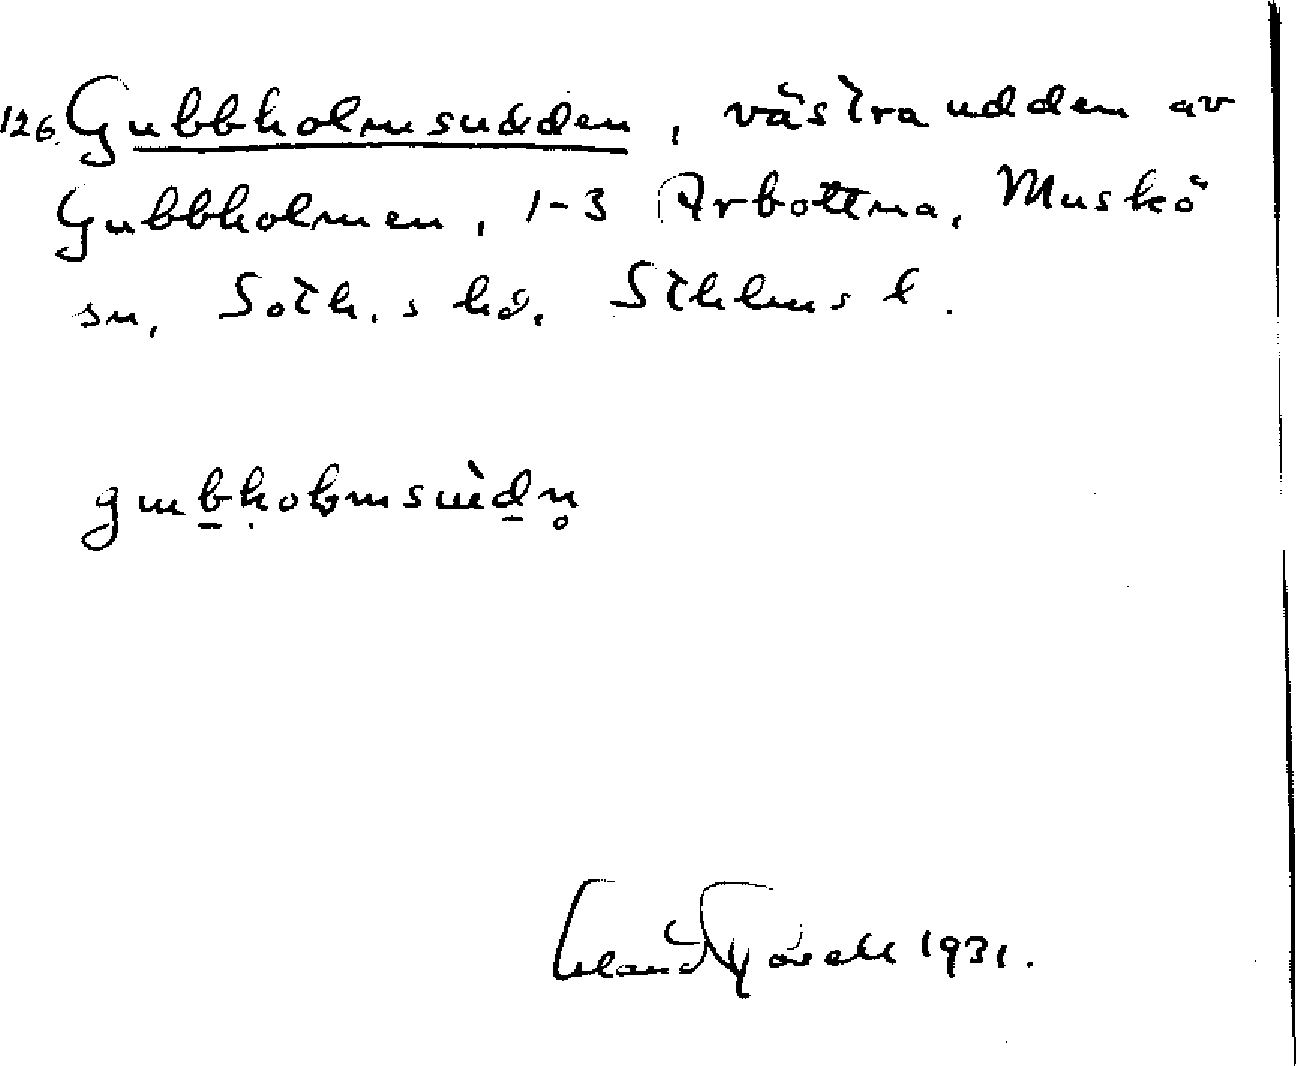 126. Gubbholmsudden, västra udden av
Gubbholmen, 1-3 Arbottna, Muskö
sn, Soth.s hd. Sthlms l.
gubholmsùdn̥
1931.